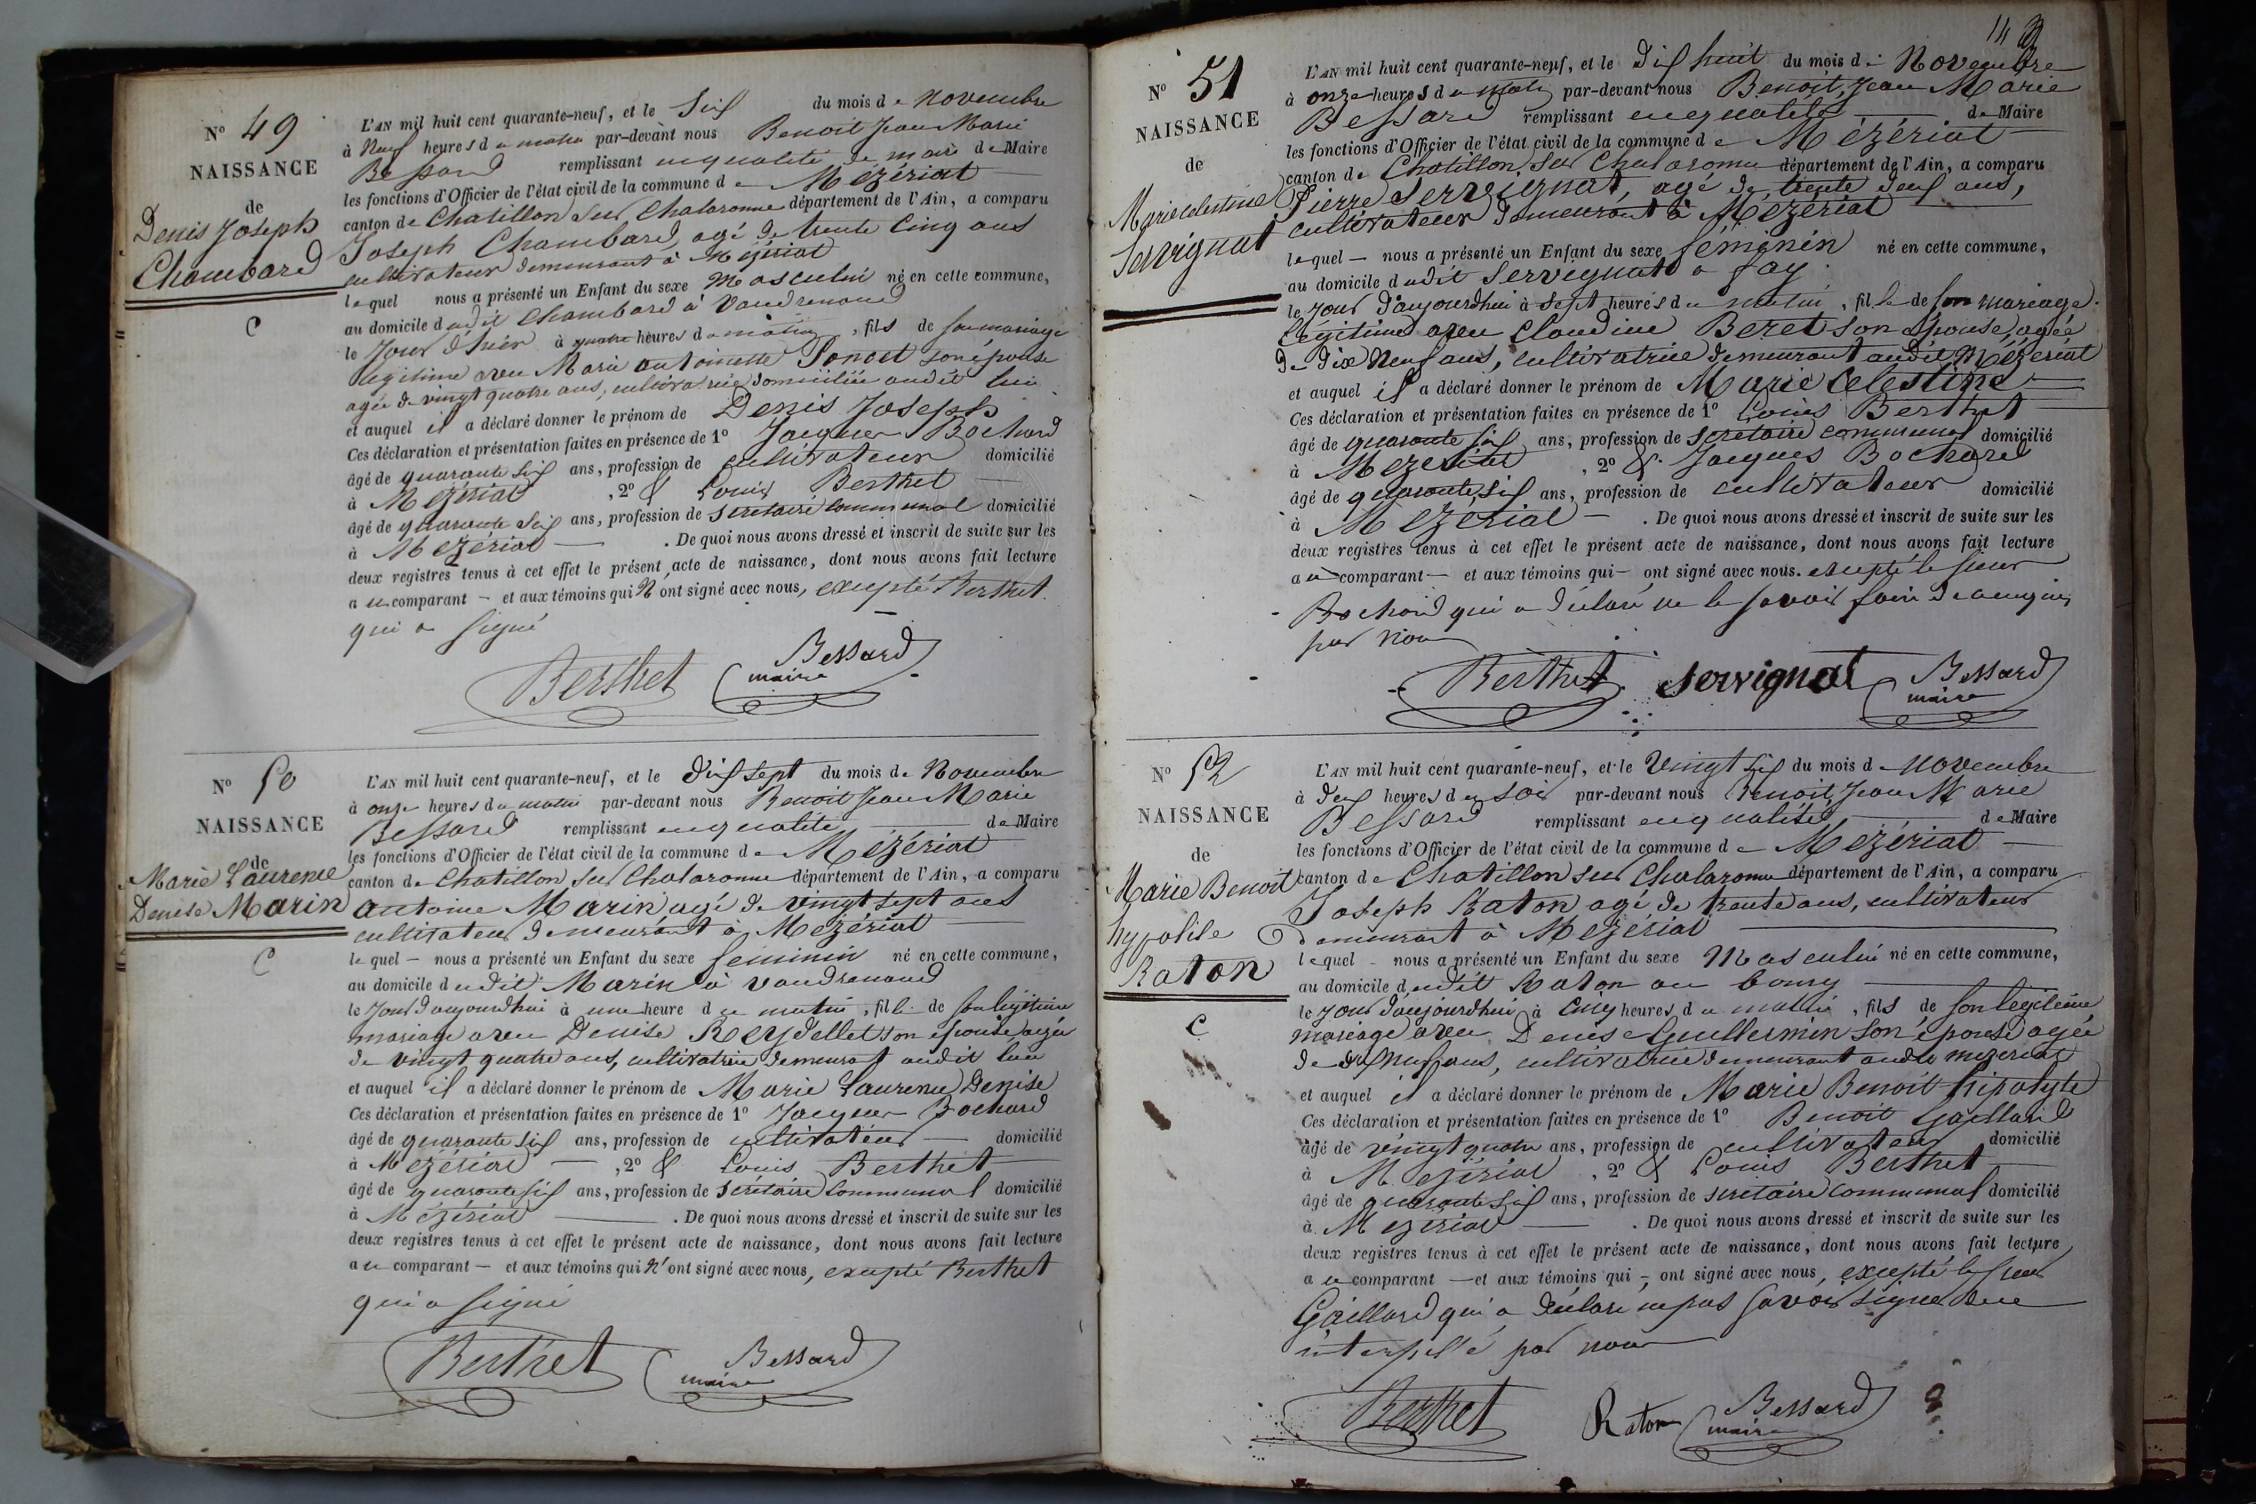 N° 49
NAISSANCE
de
Denis Joseph
Chambard
C
L'AN mil huit cent quarante-neuf, et le Six du mois de Novembre
à Neuf heures du matin par-devant nous Benoit Jean Marie
Bessard remplissant en qualité de maire de Maire
les fonctions d'Officier de l'état civil de la commune de Mézériat
canton de Chatillon sur Chalaronne département de l'Ain, a comparu
Joseph Chambard, agé de trente cinq ans
cultivateur demeurant à Mézériat
lequel nous a présenté un Enfant du sexe Masculin né en cette commune,
au domicile dudit Chambard à Vaudrenand
le Jour d'hier à quatre heures du matin, fils de son mariage
legitime avec Marie antoinette Poncet son épouse
agée de vingt quatre ans, cultivatrice domiciliée audit lieu
et auquel il a déclaré donner le prénom de Denis Joseph
Ces déclaration et présentation faites en présence de 1° Jacques Bochard
âgé de quarante six ans, profession de cultivateur domicilié
à Mézériat, 2° & Louis Berthet
âgé de quarante six ans, profession de secrétaire communal domicilié
à Mézériat. De quoi nous avons dressé et inscrit de suite sur les
deux registres tenus à cet effet le présent acte de naissance, dont nous avons fait lecture
au comparant — et aux témoins qui N'ont signé avec nous, excepté Berthet
qui a signé
Berthet Bessard
maire
N° 50
NAISSANCE
de
Marie Laurence
Denise Marin
C
L'AN mil huit cent quarante-neuf, et le dix sept du mois de Novembre
à onze heures du matin par-devant nous Benoit Jean Marie
Bessard remplissant en qualité de Maire
les fonctions d'Officier de l'état civil de la commune de Mézériat
canton de Chatillon sur Chalaronne département de l'Ain, a comparu
antoine Marin agé de vingt sept ans
cultivateur demeurant à Mézériat
lequel — nous a présenté un Enfant du sexe féminin né en cette commune,
au domicile dudit Marin à Vaudrenand
le Jour d'aujourdhui à une heure du matin, fille de son légitime
mariage avec Denise Reydellet son épouse agée
de vingt quatre ans, cultivatrice demeurant audit lieu
et auquel il a déclaré donner le prénom de Marie Laurence Denise
Ces déclaration et présentation faites en présence de 1° Jacques Bochard
âgé de quarante six ans, profession de cultivateur — domicilié
à Mézériat —, 2° & Louis Berthet
âgé de quarante six ans, profession de secrétaire communal domicilié
à Mézériat. De quoi nous avons dressé et inscrit de suite sur les
deux registres tenus à cet effet le présent acte de naissance, dont nous avons fait lecture
au comparant — et aux témoins qui N'ont signé avec nous, excepté Berthet
qui a signé
Berthet Bessard
maire
N° 51
NAISSANCE
de
Marie Celestine
Servignat
L'AN mil huit cent quarante-neuf, et le dix huit du mois de Novembre
à onze heures du matin par-devant nous Benoit, Jean Marie
Bessard remplissant en qualité de Maire
les fonctions d'Officier de l'état civil de la commune de Mézériat
canton de Chatillon sur Chalaronne département de l'Ain, a comparu
Pierre Servignat, agé de trente deux ans,
cultivateur demeurant à Mézériat
lequel — nous a présenté un Enfant du sexe féminin né en cette commune,
au domicile dudit Servignat à fay
le Jour d'aujourdhui à sept heures du matin, fille de son mariage
légitime avec Claudine Beret son épouse, agée
de dix Neuf ans, cultivatrice demeurant audit Mézériat
et auquel il a déclaré donner le prénom de Marie Celestine
Ces déclaration et présentation faites en présence de 1° Louis Berthet
âgé de quarante six ans, profession de secrétaire communal domicilié
à Mézériat, 2° & Jacques Bochard
âgé de quarante six ans, profession de cultivateur domicilié
à Mézériat —. De quoi nous avons dressé et inscrit de suite sur les
deux registres tenus à cet effet le présent acte de naissance, dont nous avons fait lecture
au comparant — et aux témoins qui — ont signé avec nous. excepté le sieur
Bochard qui a déclaré ne le savoir faire de ce requis
par nous
Berthet servignat Bessard
maire
N° 52
NAISSANCE
de
Marie Benoit
hypolite
Raton
C
L'AN mil huit cent quarante-neuf, et le Vingt six du mois de Novembre
à deux heures du soir par-devant nous Benoit, Jean Marie
Bessard remplissant en qualité de Maire
les fonctions d'Officier de l'état civil de la commune de Mézériat
canton de Chatillon sur Chalaronne département de l'Ain, a comparu
Joseph Raton agé de trente ans, cultivateur
demeurant à Mézériat
lequel - nous a présenté un Enfant du sexe Masculin né en cette commune,
au domicile dudit Raton au bourg
le Jour d'aujourdhui à cinq heures du matin, fils de son legitime
mariage avec Denise Guillermin son épouse agée
de dix Neuf ans, cultivatrice demeurant audit mezeriat
et auquel il a déclaré donner le prénom de Marie Benoit hipolyte
Ces déclaration et présentation faites en présence de 1° Benoit Gaillard
âgé de vingt quatre ans, profession de cultivateur domicilié
à Mézériat, 2° & Louis Berthet
âgé de quarante six ans, profession de secrétaire communal domicilié
à Mézériat —. De quoi nous avons dressé et inscrit de suite sur les
deux registres tenus à cet effet le présent acte de naissance, dont nous avons fait lecture
au comparant — et aux témoins qui — ont signé avec nous, excepté le sieur
Gaillard qui a déclaré ne pas savoir signer de ce
interpellé par nous
Berthet Raton Bessard
maire